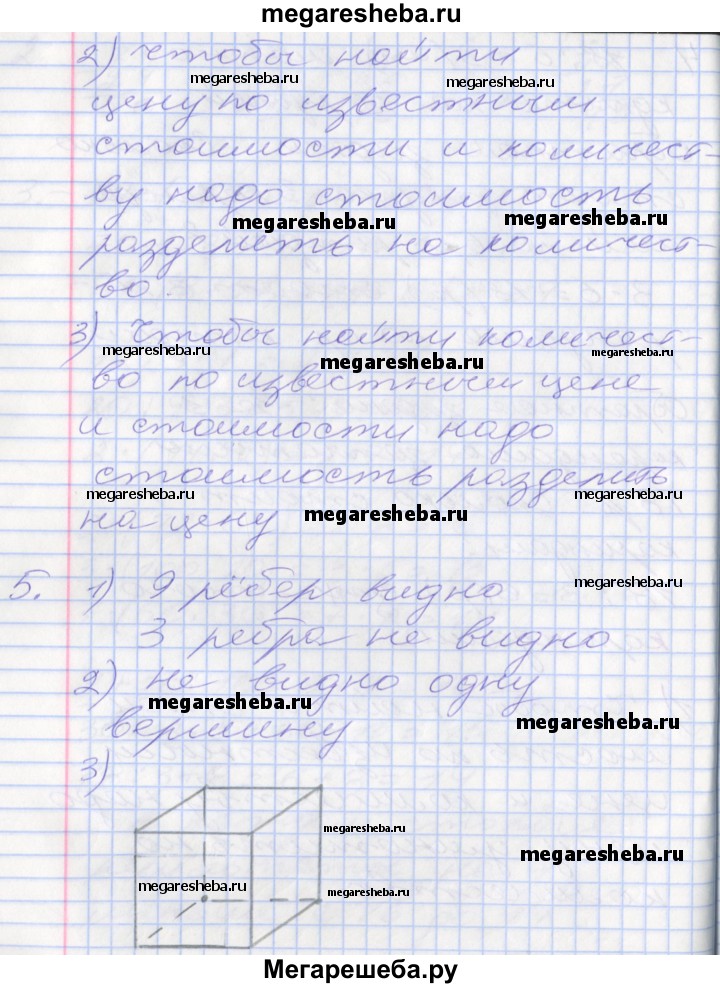 megaresheba.ru
2) чтобы найти
megaresheba.ru megaresheba.ru
цену по известным
стоимости и количест-
ву надо стоимость
megaresheba.ru megaresheba.ru
разделить на количест-
во.
3) Чтобы найти количест-
megaresheba.ru megaresheba.ru megaresheba.ru
во по известным цене
и стоимости надо
стоимость разделить
megaresheba.ru megaresheba.ru
на цену megaresheba.ru
5. 1) 9 рёбер видно megaresheba.ru
3 ребра не видно
2) не видно одну
megaresheba.ru megaresheba.ru
вершину
3)
megaresheba.ru
megaresheba.ru
megaresheba.ru megaresheba.ru
Мегарешеба.ру